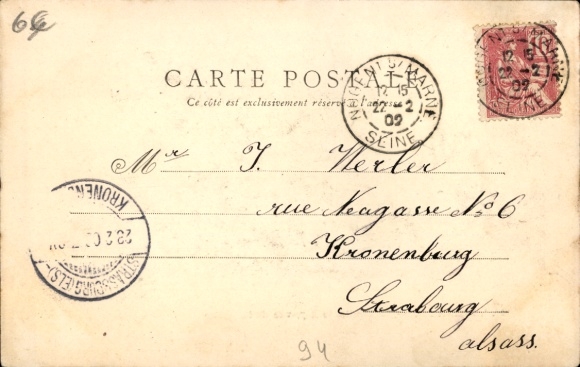 64
CARTE POSTALE
Ce côté est exclusivement réservé à l'adresse
NOGENT S/ MARNE
12 15
22 - 2
02
SEINE
NOGENT S/ MARNE
12 15
22 - 2
02
SEINE
10
Mr J. Werler
rue Neagasse No 6
Kronenburg
Strabourg
alsass.
STRASSBURG (ELS)
KRONENB
23 2 02
94